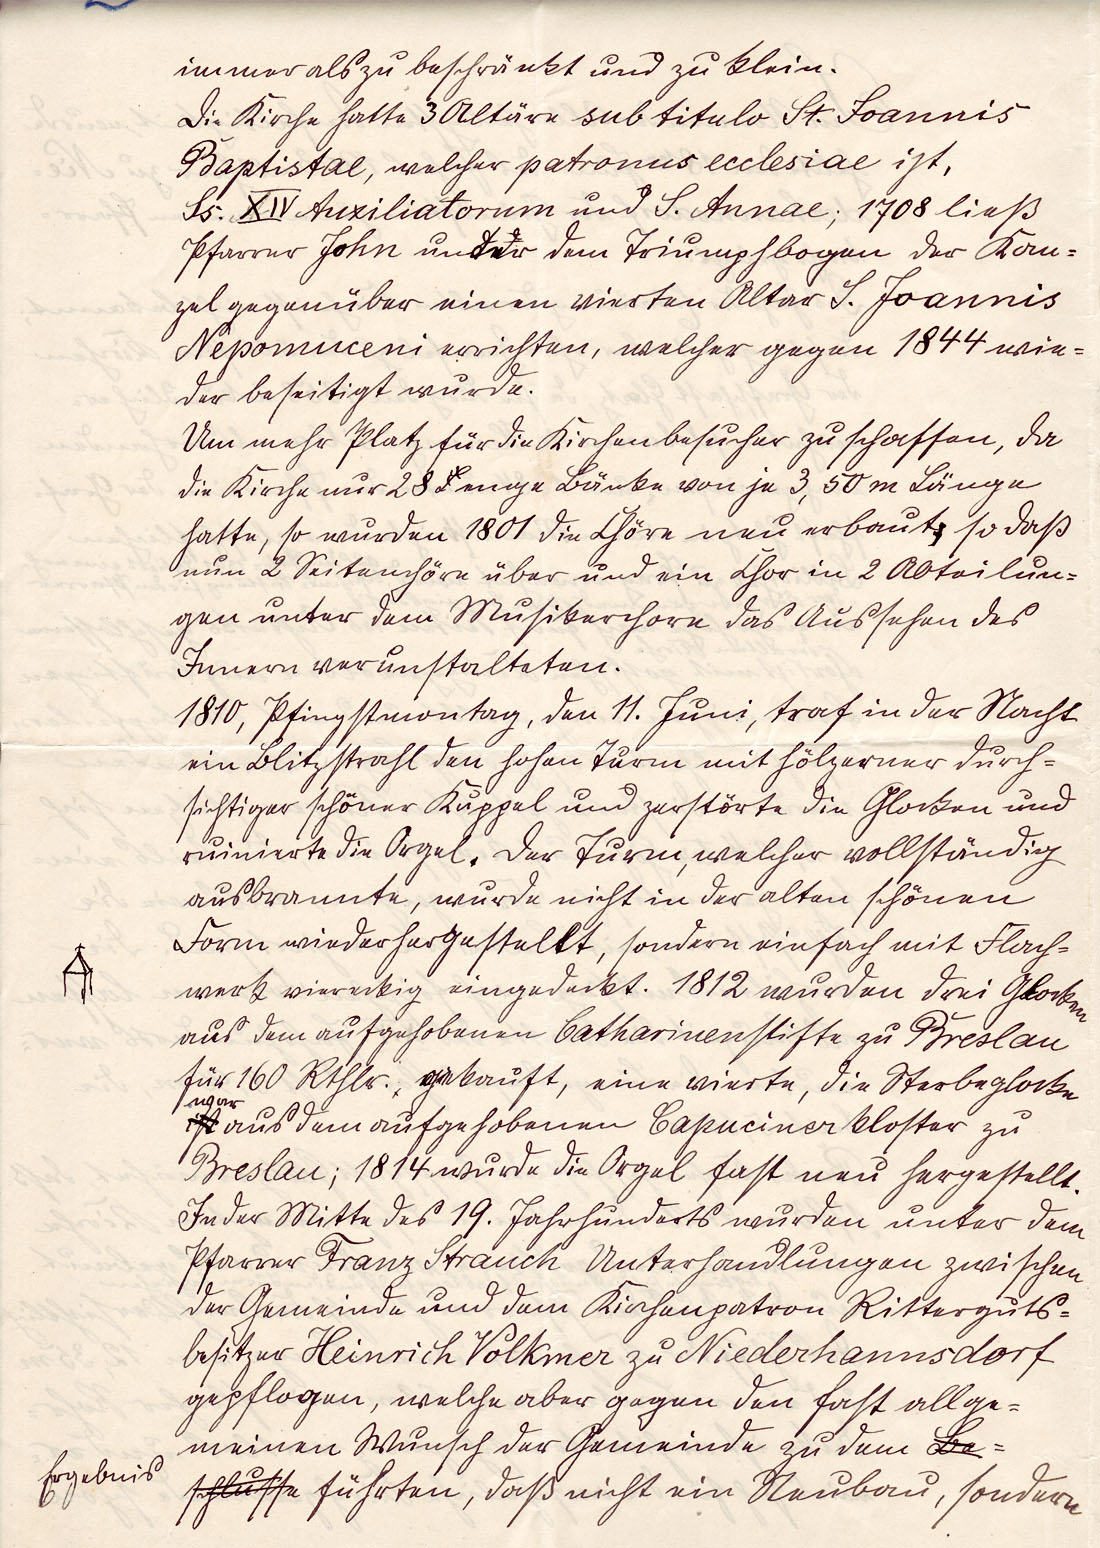 immer als zu beschränkt und zu klein.
Die Kirche hatte 3 Altäre sub titulo St. Joannis
Baptistae, welcher patronus ecclesiae ist,
Ss. XIV Auxiliatorum und S. Annae; 1708 ließ
Pfarrer John unter dem Triumphbogen der Kan=
zel gegenüber einen vierten Altar S. Joannis
Nepomuceni errichten, welcher gegen 1844 wie=
der beseitigt wurde.
Um mehr Platz für die Kirchenbesucher zu schaffen, da
die Kirche nur 28 enge Bänke von je 3,50 m Länge
hatte, so wurden 1801 die Chöre neu erbaut, so daß
nun 2 Seitenchöre über und ein Chor in 2 Abteilun=
gen unter dem Musikerchore das Aussehen des
Innern verunstalteten.
1810, Pfingstmontag, den 11. Juni, traf in der Nacht
ein Blitzstrahl den hohen Turm mit hölzerner durch=
sichtiger schöner Kuppel und zerstörte die Glocken und
ruinierte die Orgel. Der Turm, welcher vollständig
ausbrannte, wurde nicht in der alten schönen
Form wiederhergestellt, sondern einfach mit Flach=
werk viereckig eingedeckt. 1812 wurden drei Glocken
aus dem aufgehobenen Catharinenstifte zu Breslau
für 160 Rthlr. gekauft, eine vierte, die Sterbeglocke
war
ist aus dem aufgehobenen Capucinerkloster zu
Breslau; 1814 wurde die Orgel fast neu hergestellt.
In der Mitte des 19. Jahrhunderts wurden unter dem
Pfarrer Franz Strauch Unterhandlungen zwischen
der Gemeinde und dem Kirchenpatron Ritterguts=
besitzer Heinrich Volkmer zu Niederhannsdorf
gepflogen, welche aber gegen den fast allge=
meinen Wunsch der Gemeinde zu dem Be=
Ergebnis
schlusse führten, daß nicht ein Neubau, sondern